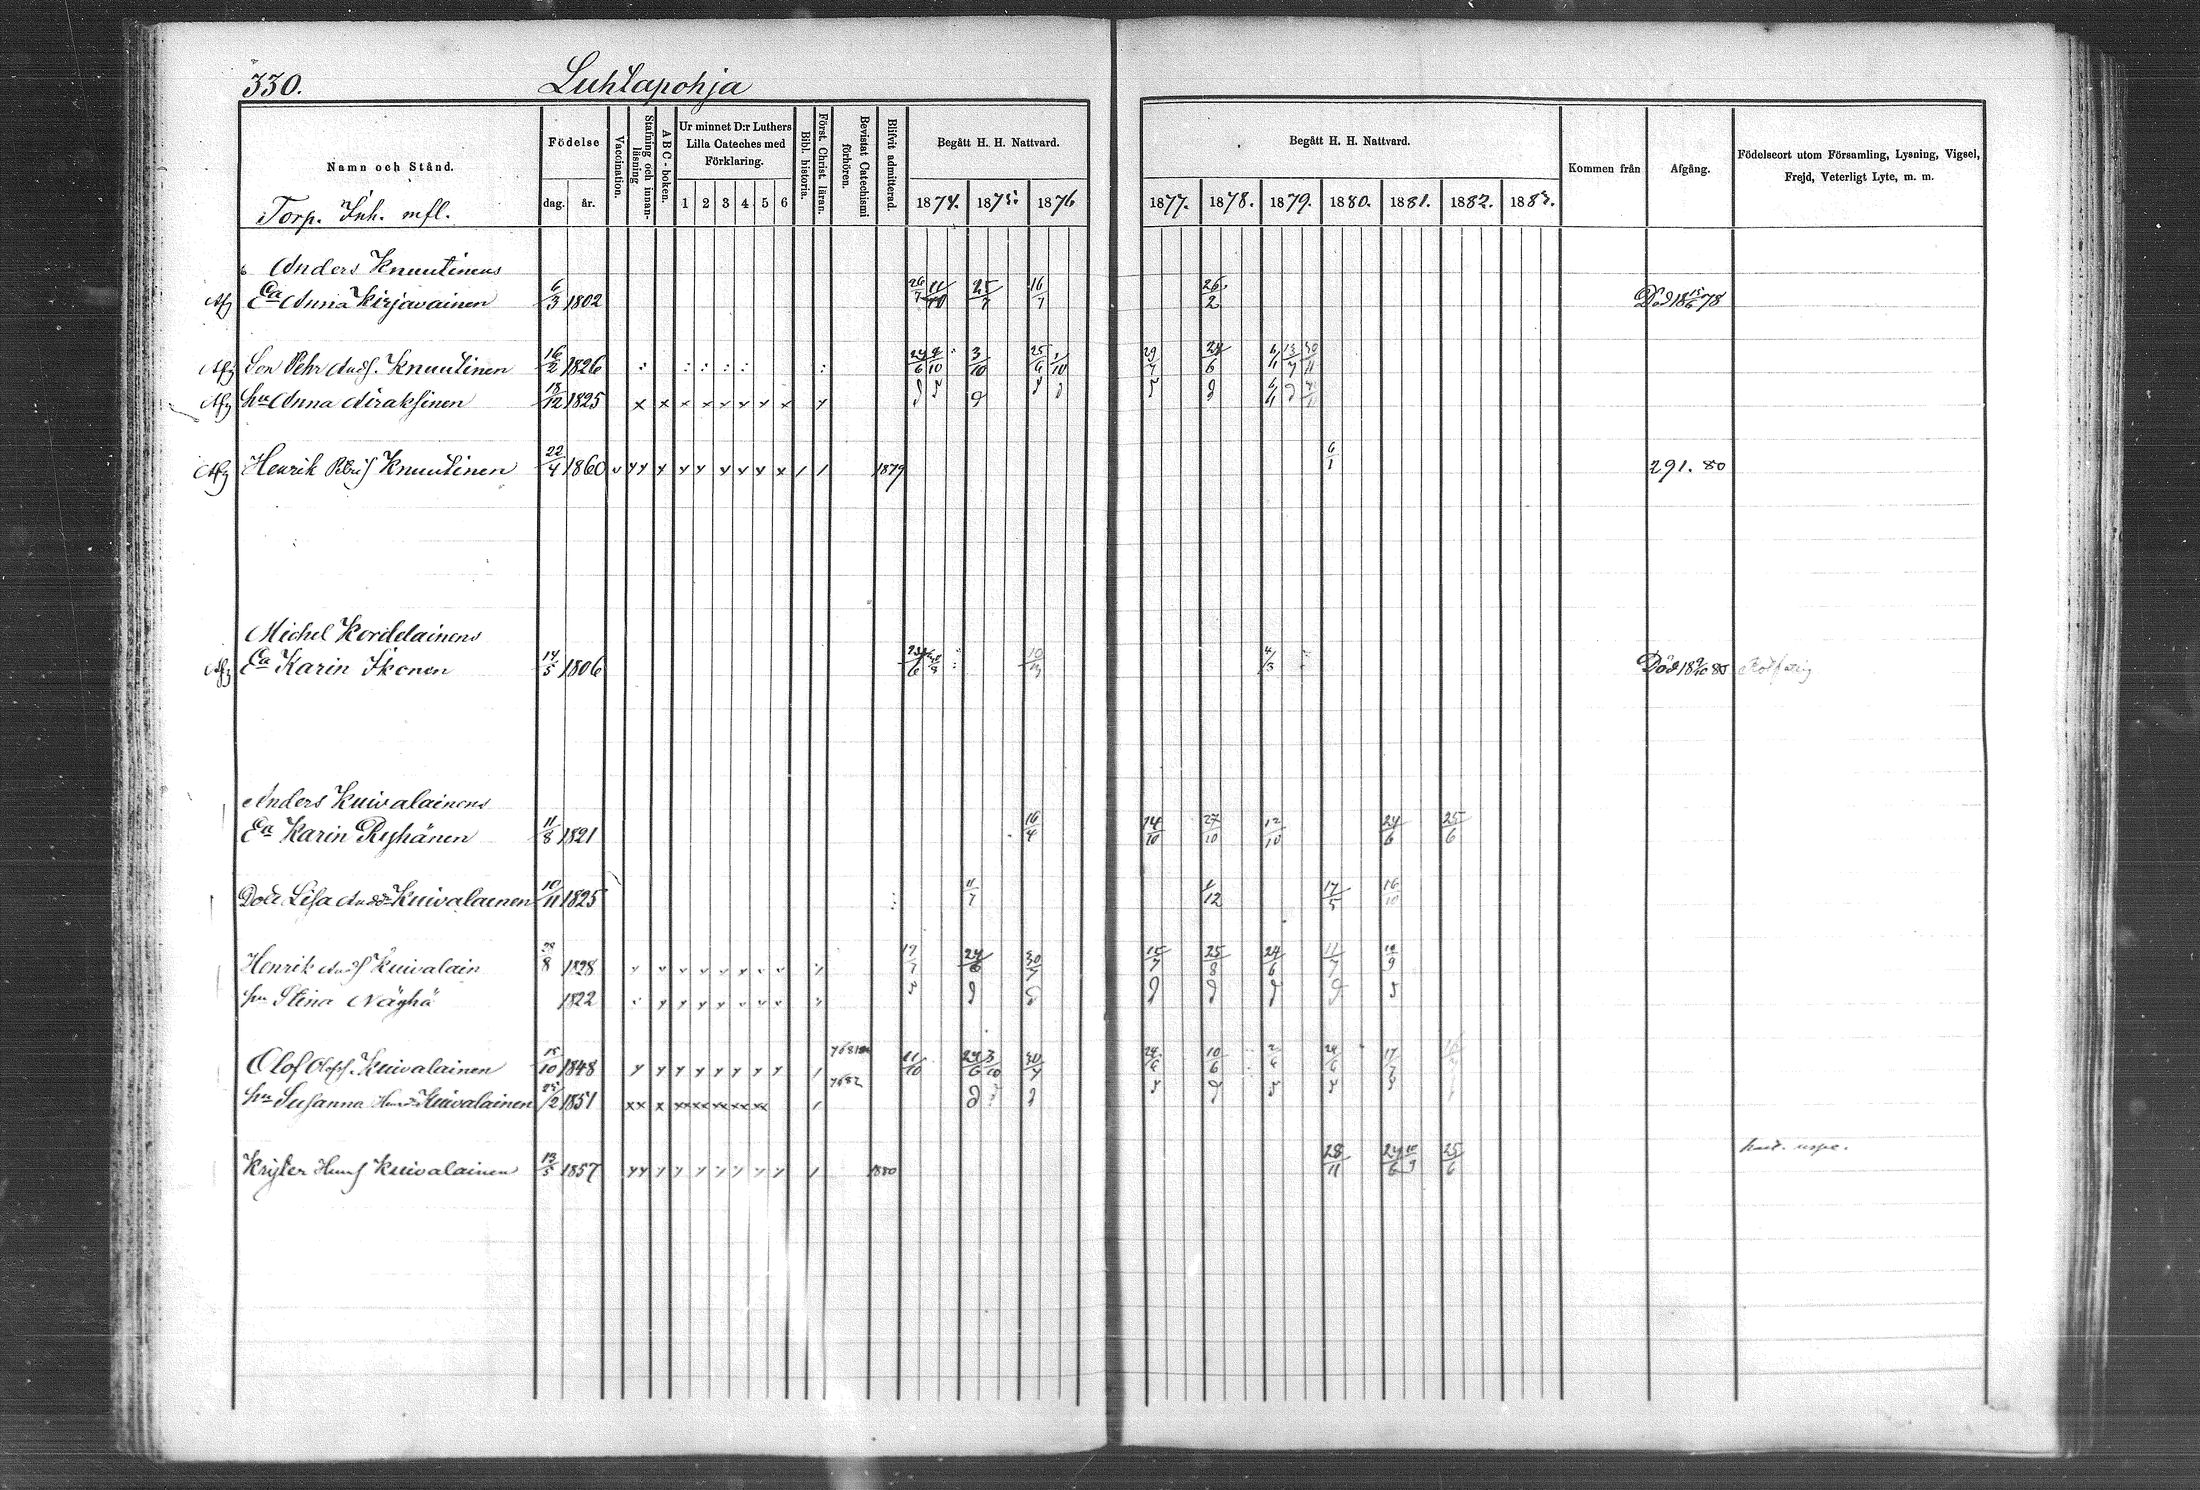 330. Luhtapohja
Namn och Stånd.
Födelse
dag. år.
Vaccination.
Stafning och innan-läsning
ABC-boken.
Ur minnet D:r Luthers Lilla Cateches med Förklaring.
1 2 3 4 5 6
Bibl. historia.
Först. Christ. läran.
Bevistat Catechismi förhören.
Blifvit admitterad.
Begått H. H. Nattvard.
1874. 1875. 1876
Begått H. H. Nattvard.
1877. 1878. 1879. 1880. 1881. 1882. 1883.
Kommen från
Afgång.
Födelseort utom Församling, Lysning, Vigsel, Frejd, Veterligt Lyte, m. m.
Torp. Inh. mfl.
Anders Knuutinens
Afg Ea Anna Kirjavainen 6/3 1802 26/7 11/10 25/7 16/7 26/2 Död 18 15/6 78
Afg Son Pehr Ands. Knuutinen 16/2 1826 3/10 25/6 1/10 29/7 24/6
Afg hu Anna Airaksinen 18/12 1825
Afg Henrik Pehrs Knuutinen 22/4 1860 1879 6/1 291. 80
Michel Korldelainens
Afg Ea Karin Ikonen 14/5 1806 10/3 4/3 Död 18 80
Anders Kuivalainens
Ea Karin Ryhänen 11/8 1821 16/4 14/10 27/10 12/10 24/6 25/6
Dotr Lisa Andsdr Kuivalainen 10/11 1825 11/7 1/12 17/5 16/10
Henrik Ands Kuivalain 1828 17/7 24/6 30/7 15/7 25/8 24/6 11/7
hu Stina Näyhä 1822
Olof Olofs. Kuivalainen 15/10 1848 11/10 24/6 3/10 30/7 24/6 10/6 2/6 24/6 17/7
hu Susanna Kuivalainen 25/2 1851 7682
Krister Kuivalainen 13/5 1857 1880 28/11 24/6 25/6